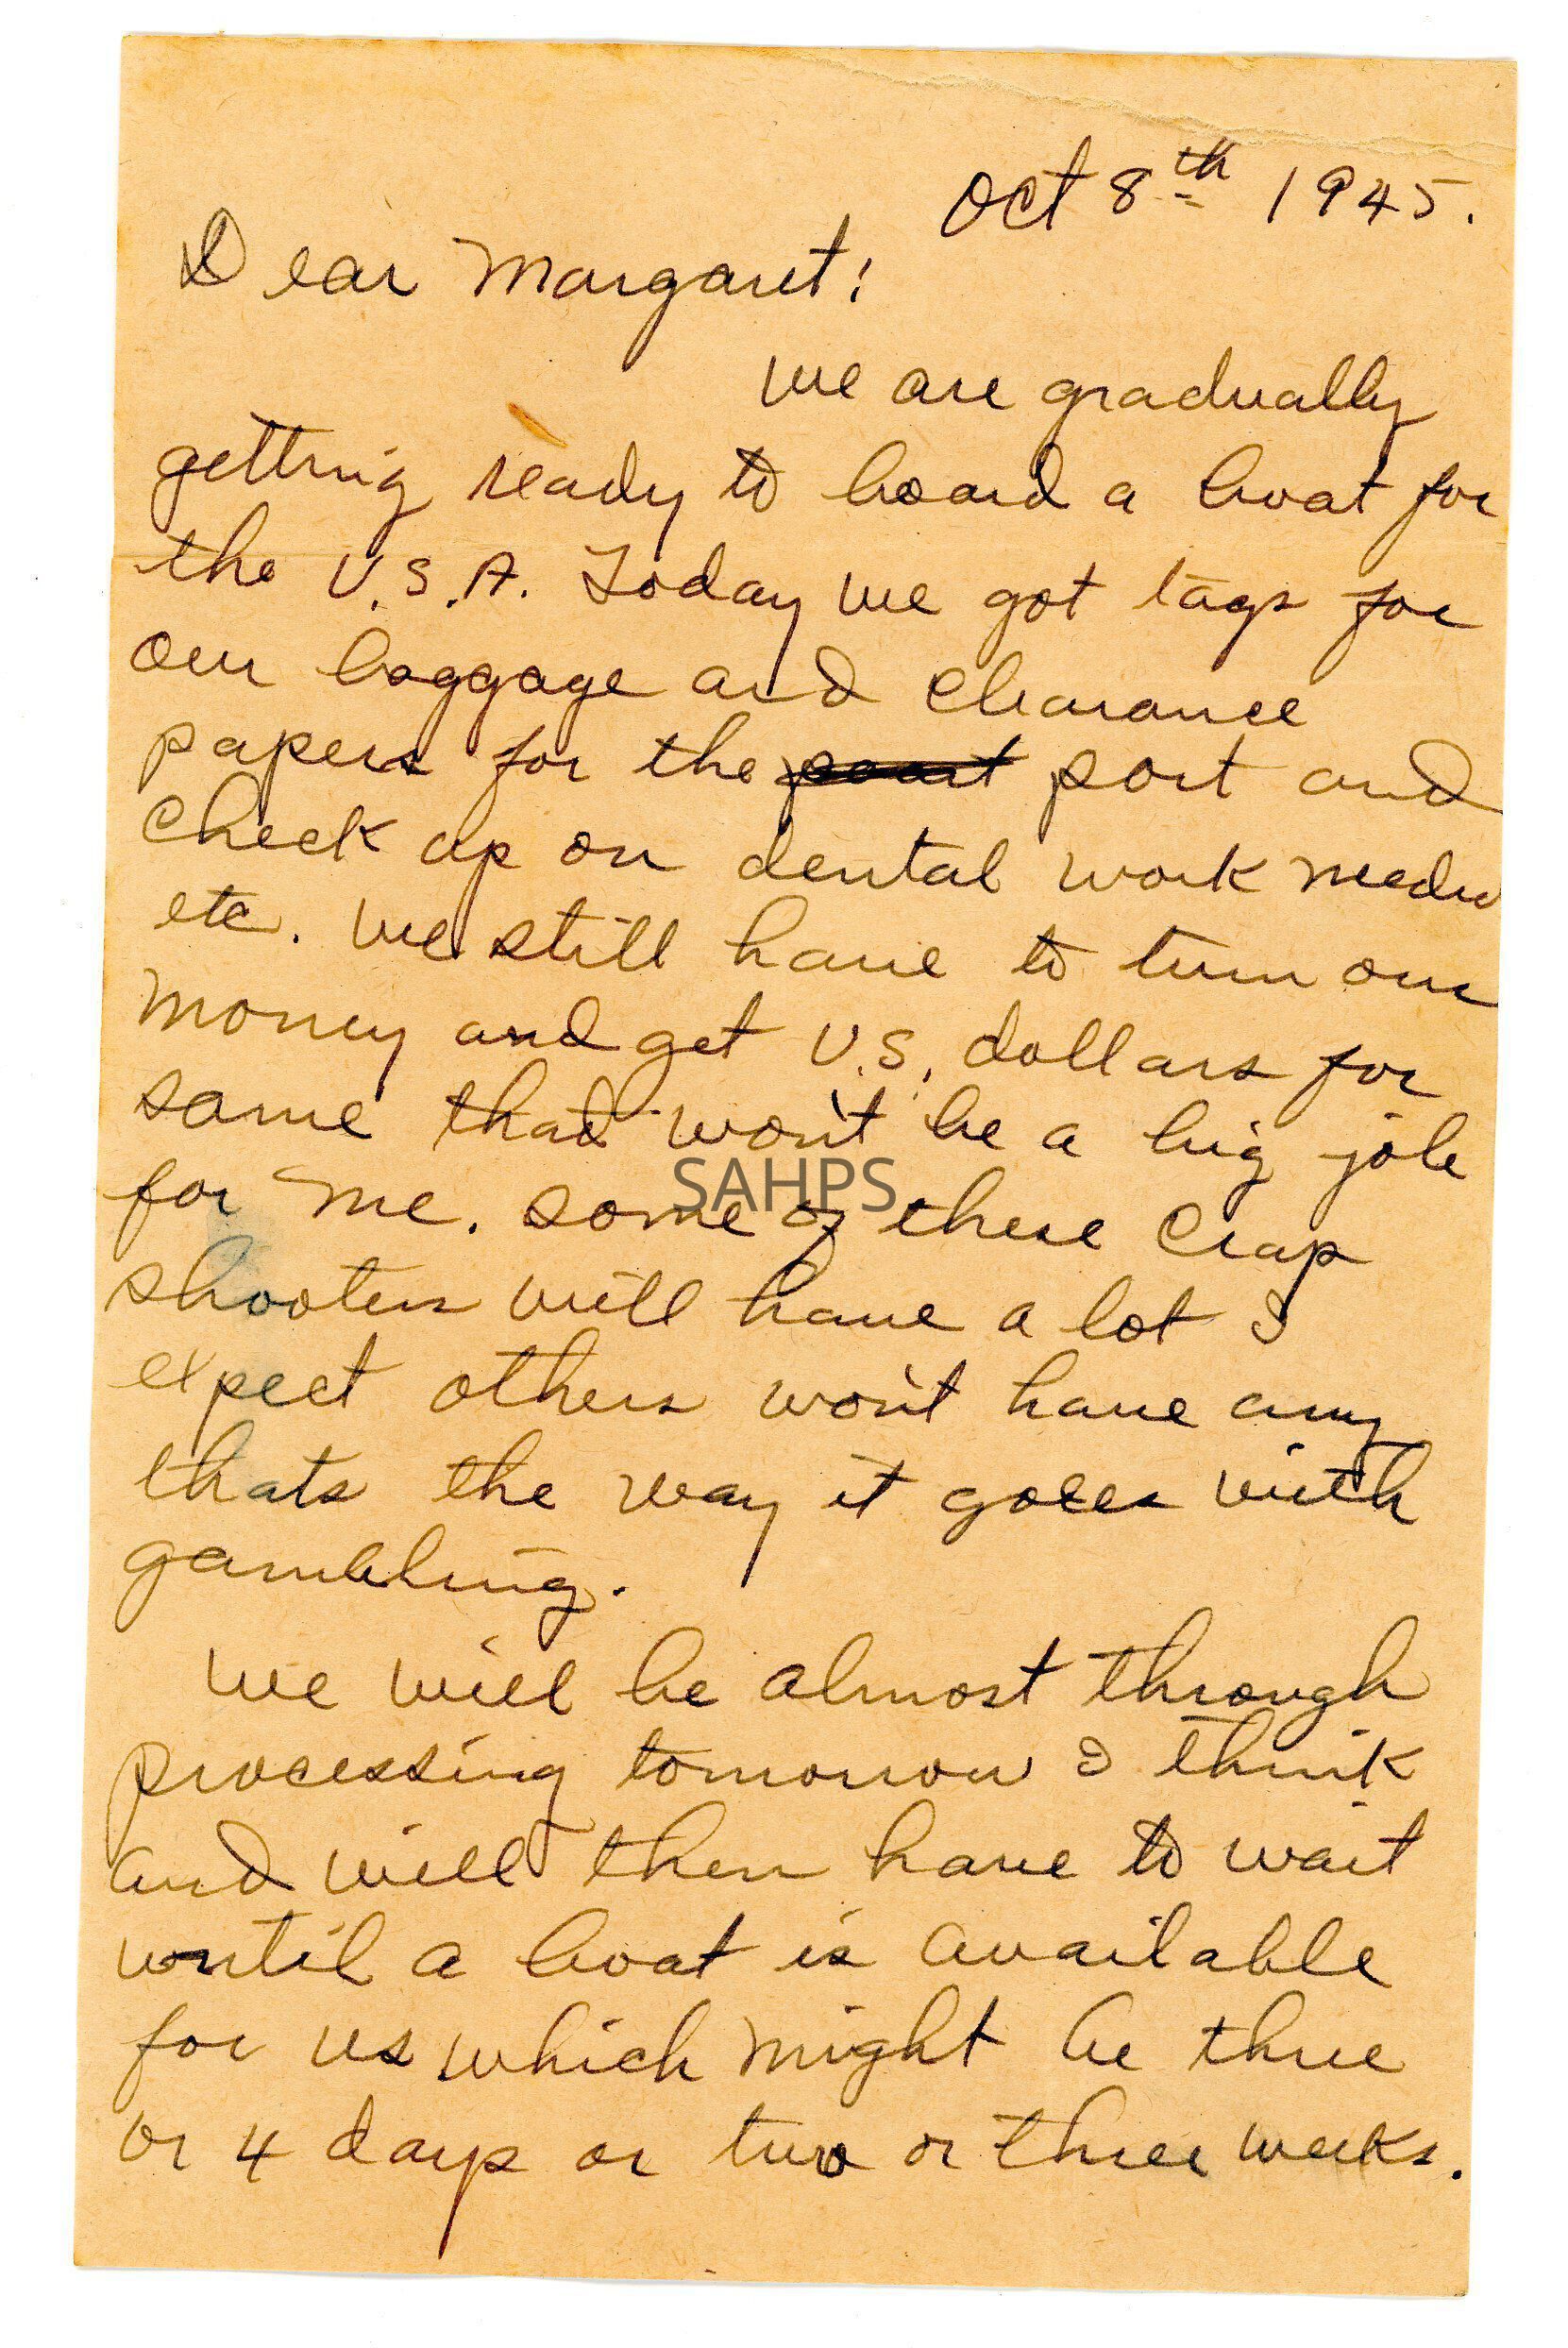 Oct 8th 1945.
Dear Margaret:
We are gradually
getting ready to board a boat for
the U.S.A. Today we got tags for
our baggage and clearance
papers for the port and
check up on dental work needed
etc. We still have to turn our
money and get U.S. dollars for
same that won't be a big job
for me. Some of these crap
SAHPS
shooters will have a lot I
expect others won't have any
thats the way it goes with
gambling.
We will be almost through
processing tomorrow I think
and will then have to wait
until a boat is available
for us which might be three
or 4 days or two or three weeks.